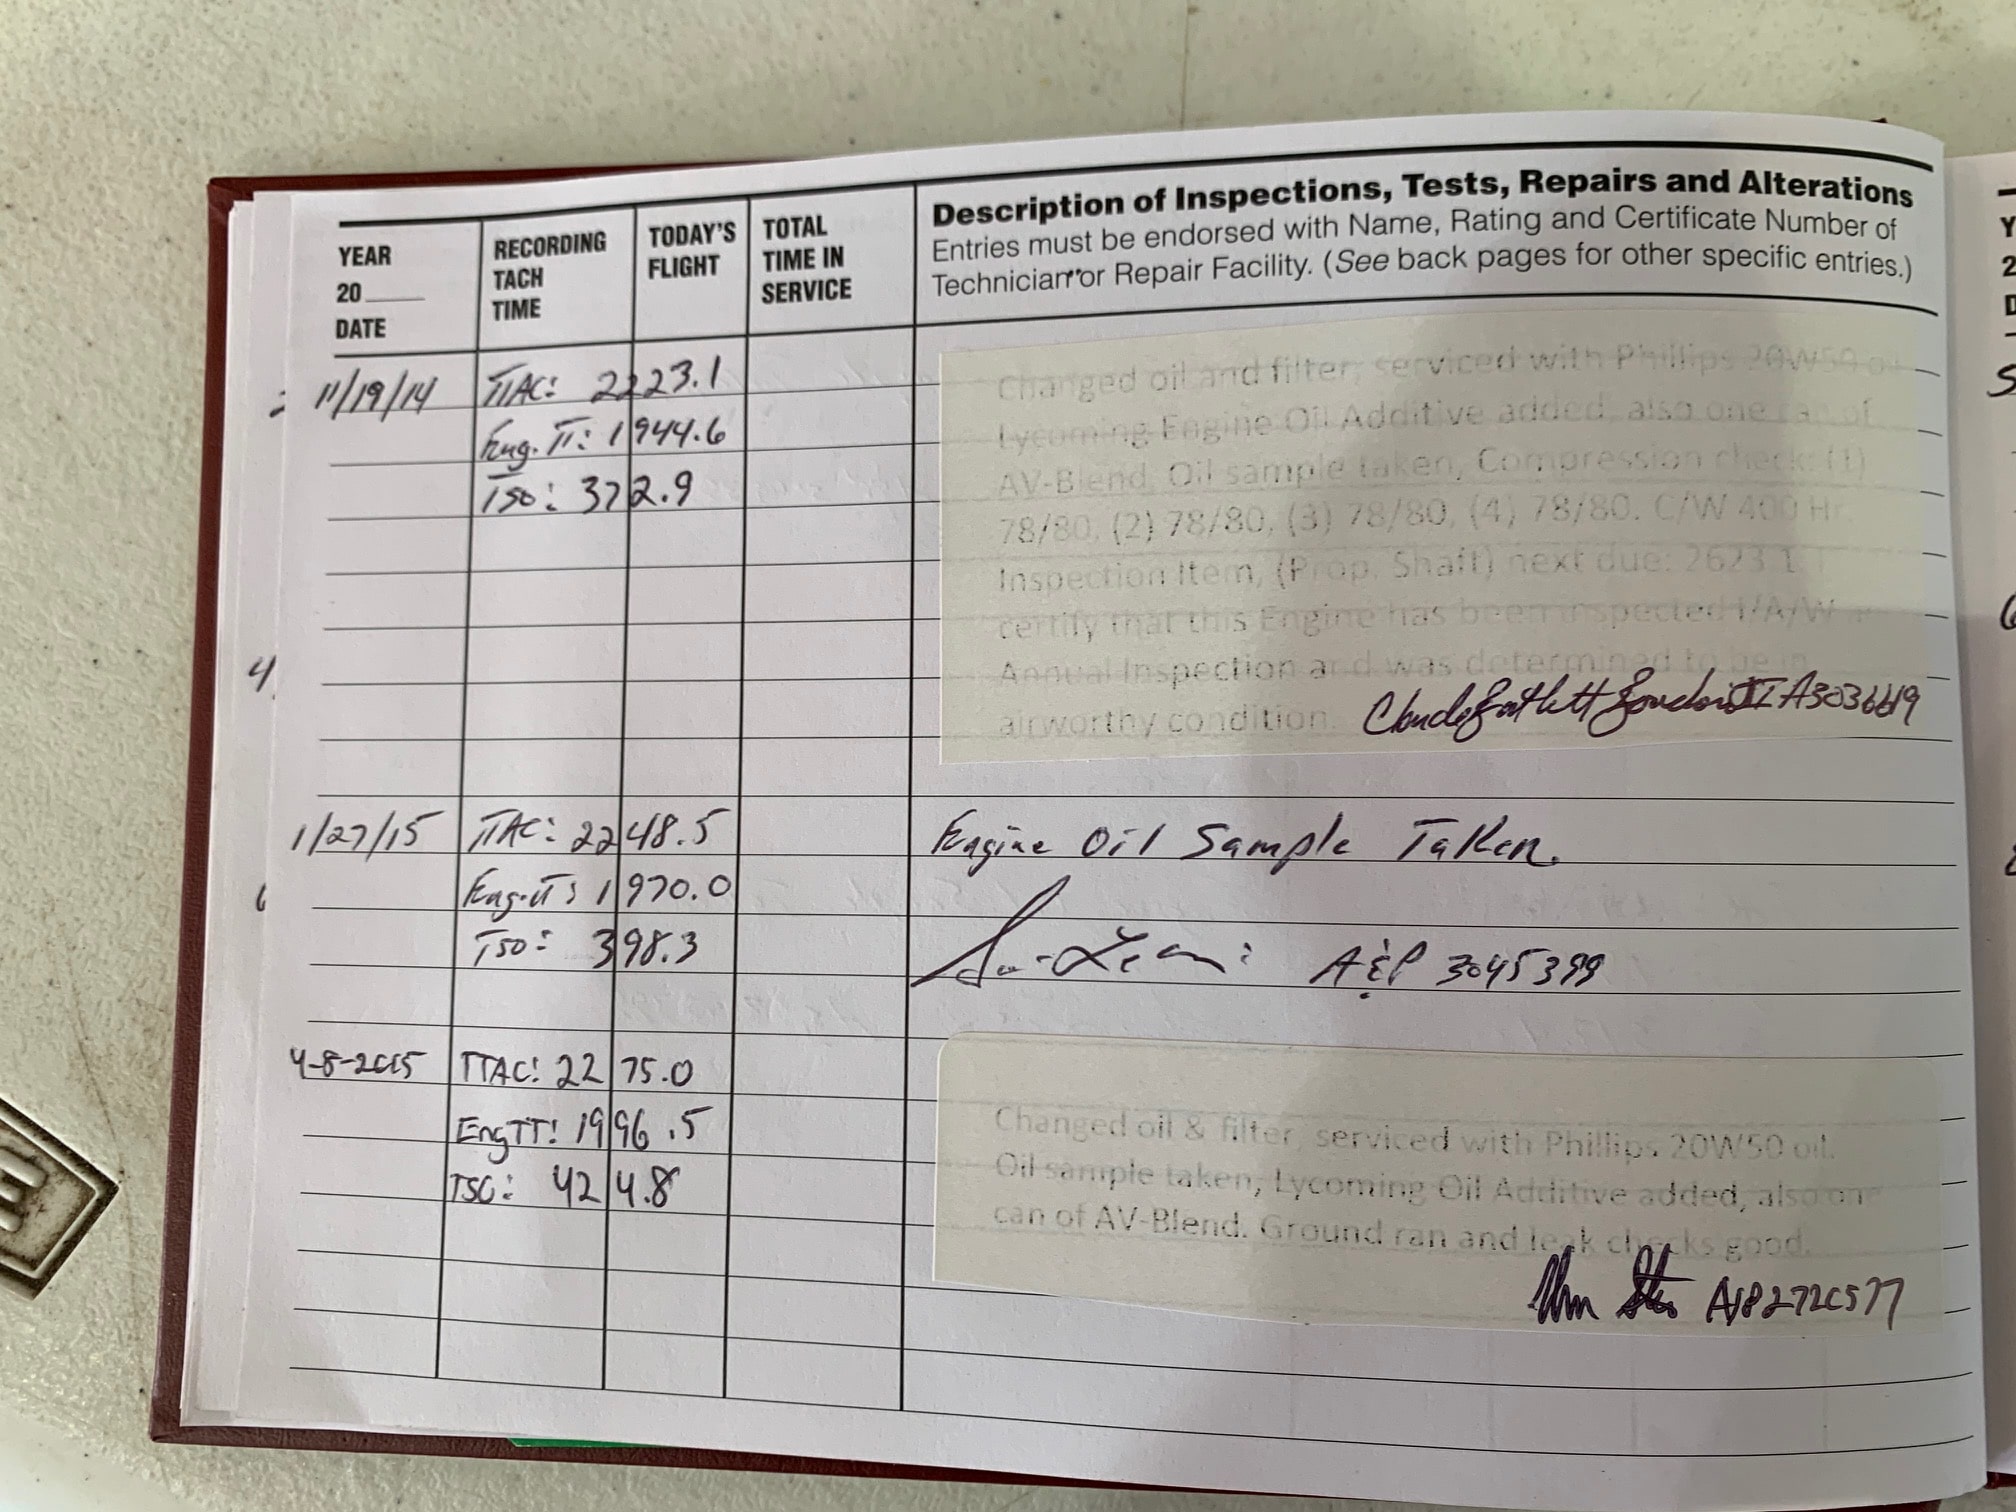 YEAR
20
DATE
RECORDING
TACH
TIME
TODAY'S
FLIGHT
TOTAL
TIME IN
SERVICE
Description of Inspections, Tests, Repairs and Alterations
Entries must be endorsed with Name, Rating and Certificate Number of
Technician or Repair Facility. (See back pages for other specific entries.)
11/19/14
TTAC: 2223.1
Eng. TT: 1944.6
TSO: 372.9
Changed oil and filter, serviced with Phillips 20W50 oil
Lycoming Engine Oil Additive added, also one can of
AV-Blend. Oil sample taken, Compression check: (1)
78/80, (2) 78/80, (3) 78/80, (4) 78/80. C/W 400 Hr
Inspection Item, (Prop. Shaft) next due: 2623.1 I
certify that this Engine has been inspected I/A/W
Annual Inspection and was determined to be in
airworthy condition.
IA3036619
1/27/15
TTAC: 2248.5
Eng. TT: 1970.0
TSO: 398.3
Engine Oil Sample Taken.
A&P 3045399
4-8-2015
TTAC: 2275.0
Eng TT: 1996.5
TSO: 424.8
Changed oil & filter, serviced with Phillips 20W50 oil.
Oil sample taken, Lycoming Oil Additive added, also one
can of AV-Blend. Ground ran and leak checks good.